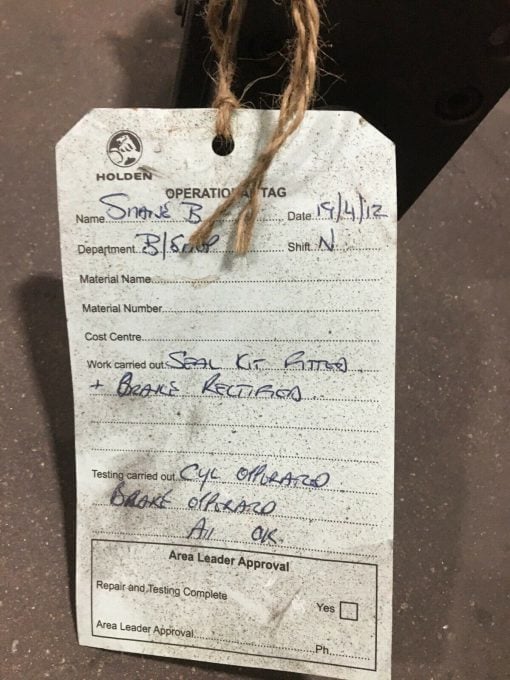 HOLDEN
OPERATIONAL TAG
Name Shane B Date 19/4/12
Department B/Shop Shift N
Material Name
Material Number
Cost Centre
Work carried out SEAL KIT FITTED
+ BRAKE RECTIFIED
Testing carried out CYL OPPERATED
BRAKE OPPERATED
All OK.
Area Leader Approval
Repair and Testing Complete
Yes
Area Leader Approval Ph